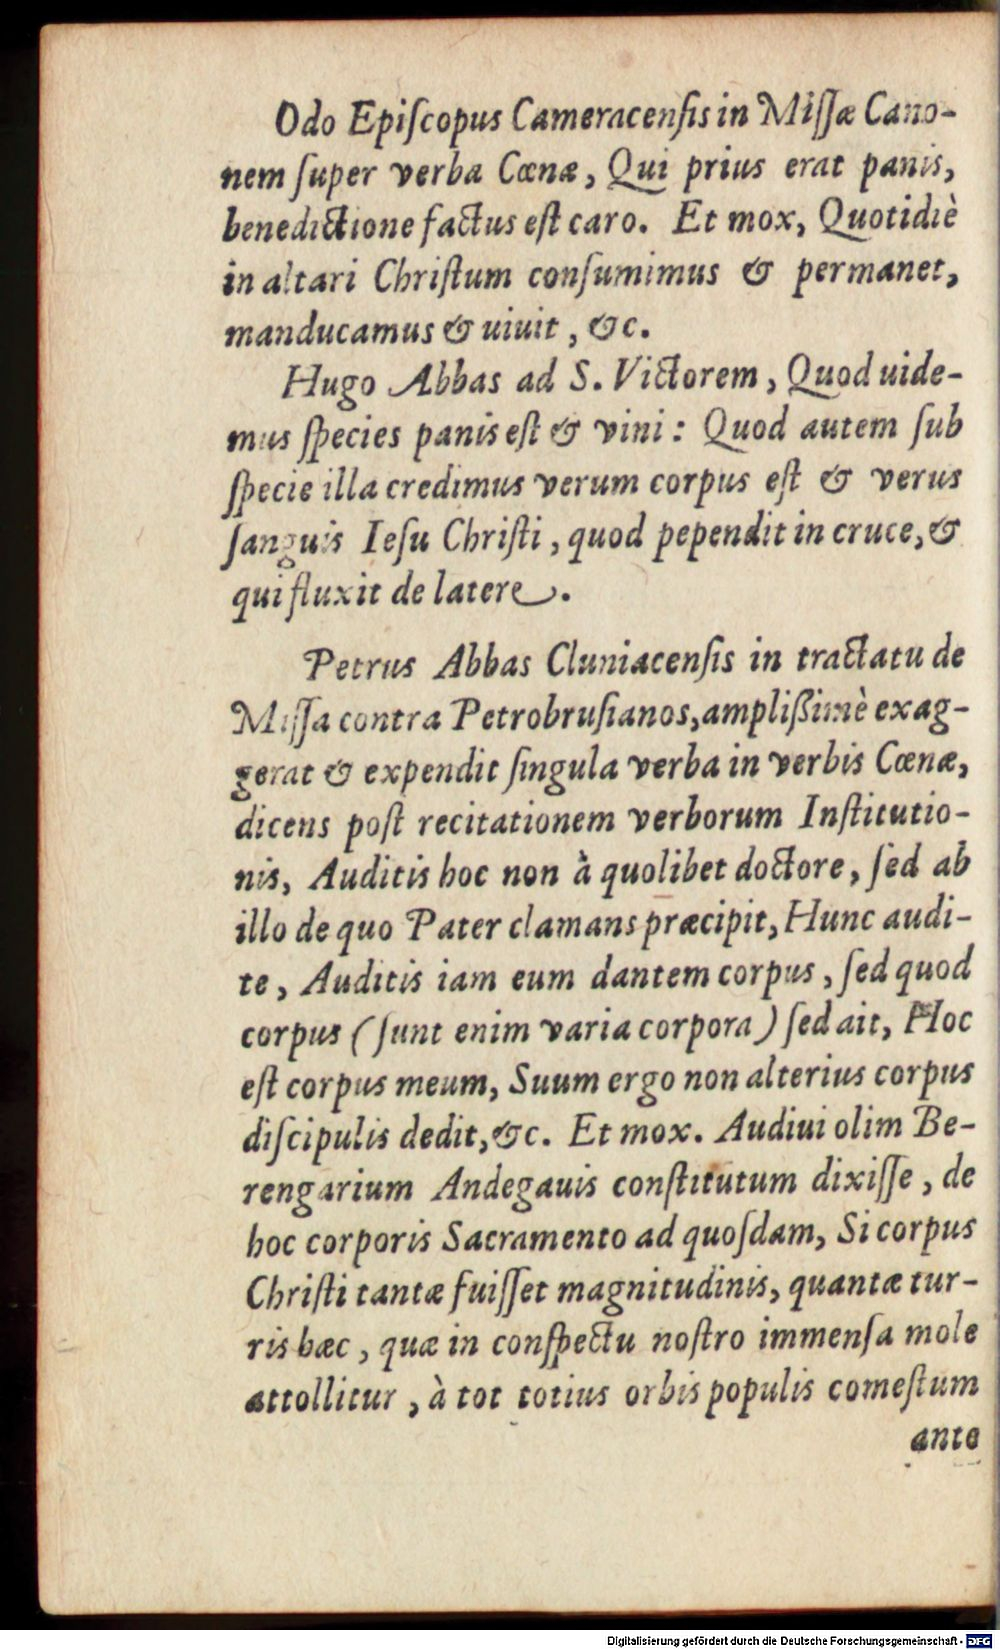 Odo Epiſcopus Cameracenſis in Miſſæ Cano-
nem ſuper verba Cœnæ, Qui prius erat panis,
benedictione factus eſt caro. Et mox, Quotidiè
in altari Chriſtum conſumimus & permanet,
manducamus & uiuit, &c.
Hugo Abbas ad S. Victorem, Quod uide-
mus ſpecies panis eſt & vini: Quod autem ſub
ſpecie illa credimus verum corpus eſt & verus
ſanguis Ieſu Chriſti, quod pependit in cruce, &
qui fluxit de latere.
Petrus Abbas Cluniacenſis in tractatu de
Miſſa contra Petrobruſianos, ampliſsimè exag-
gerat & expendit ſingula verba in verbis Cœnæ,
dicens poſt recitationem verborum Inſtitutio-
nis, Auditis hoc non à quolibet doctore, ſed ab
illo de quo Pater clamans præcipit, Hunc audi-
te, Auditis iam eum dantem corpus, ſed quod
corpus (ſunt enim varia corpora) ſed ait, Hoc
eſt corpus meum, Suum ergo non alterius corpus
diſcipulis dedit, &c. Et mox. Audiui olim Be-
rengarium Andegauis conſtitutum dixiſſe, de
hoc corporis Sacramento ad quoſdam, Si corpus
Chriſti tantæ fuiſſet magnitudinis, quantæ tur-
ris hæc, quæ in conſpectu noſtro immenſa mole
attollitur, à tot totius orbis populis comeſtum
ante
Digitalisierung gefördert durch die Deutsche Forschungsgemeinschaft - DFG